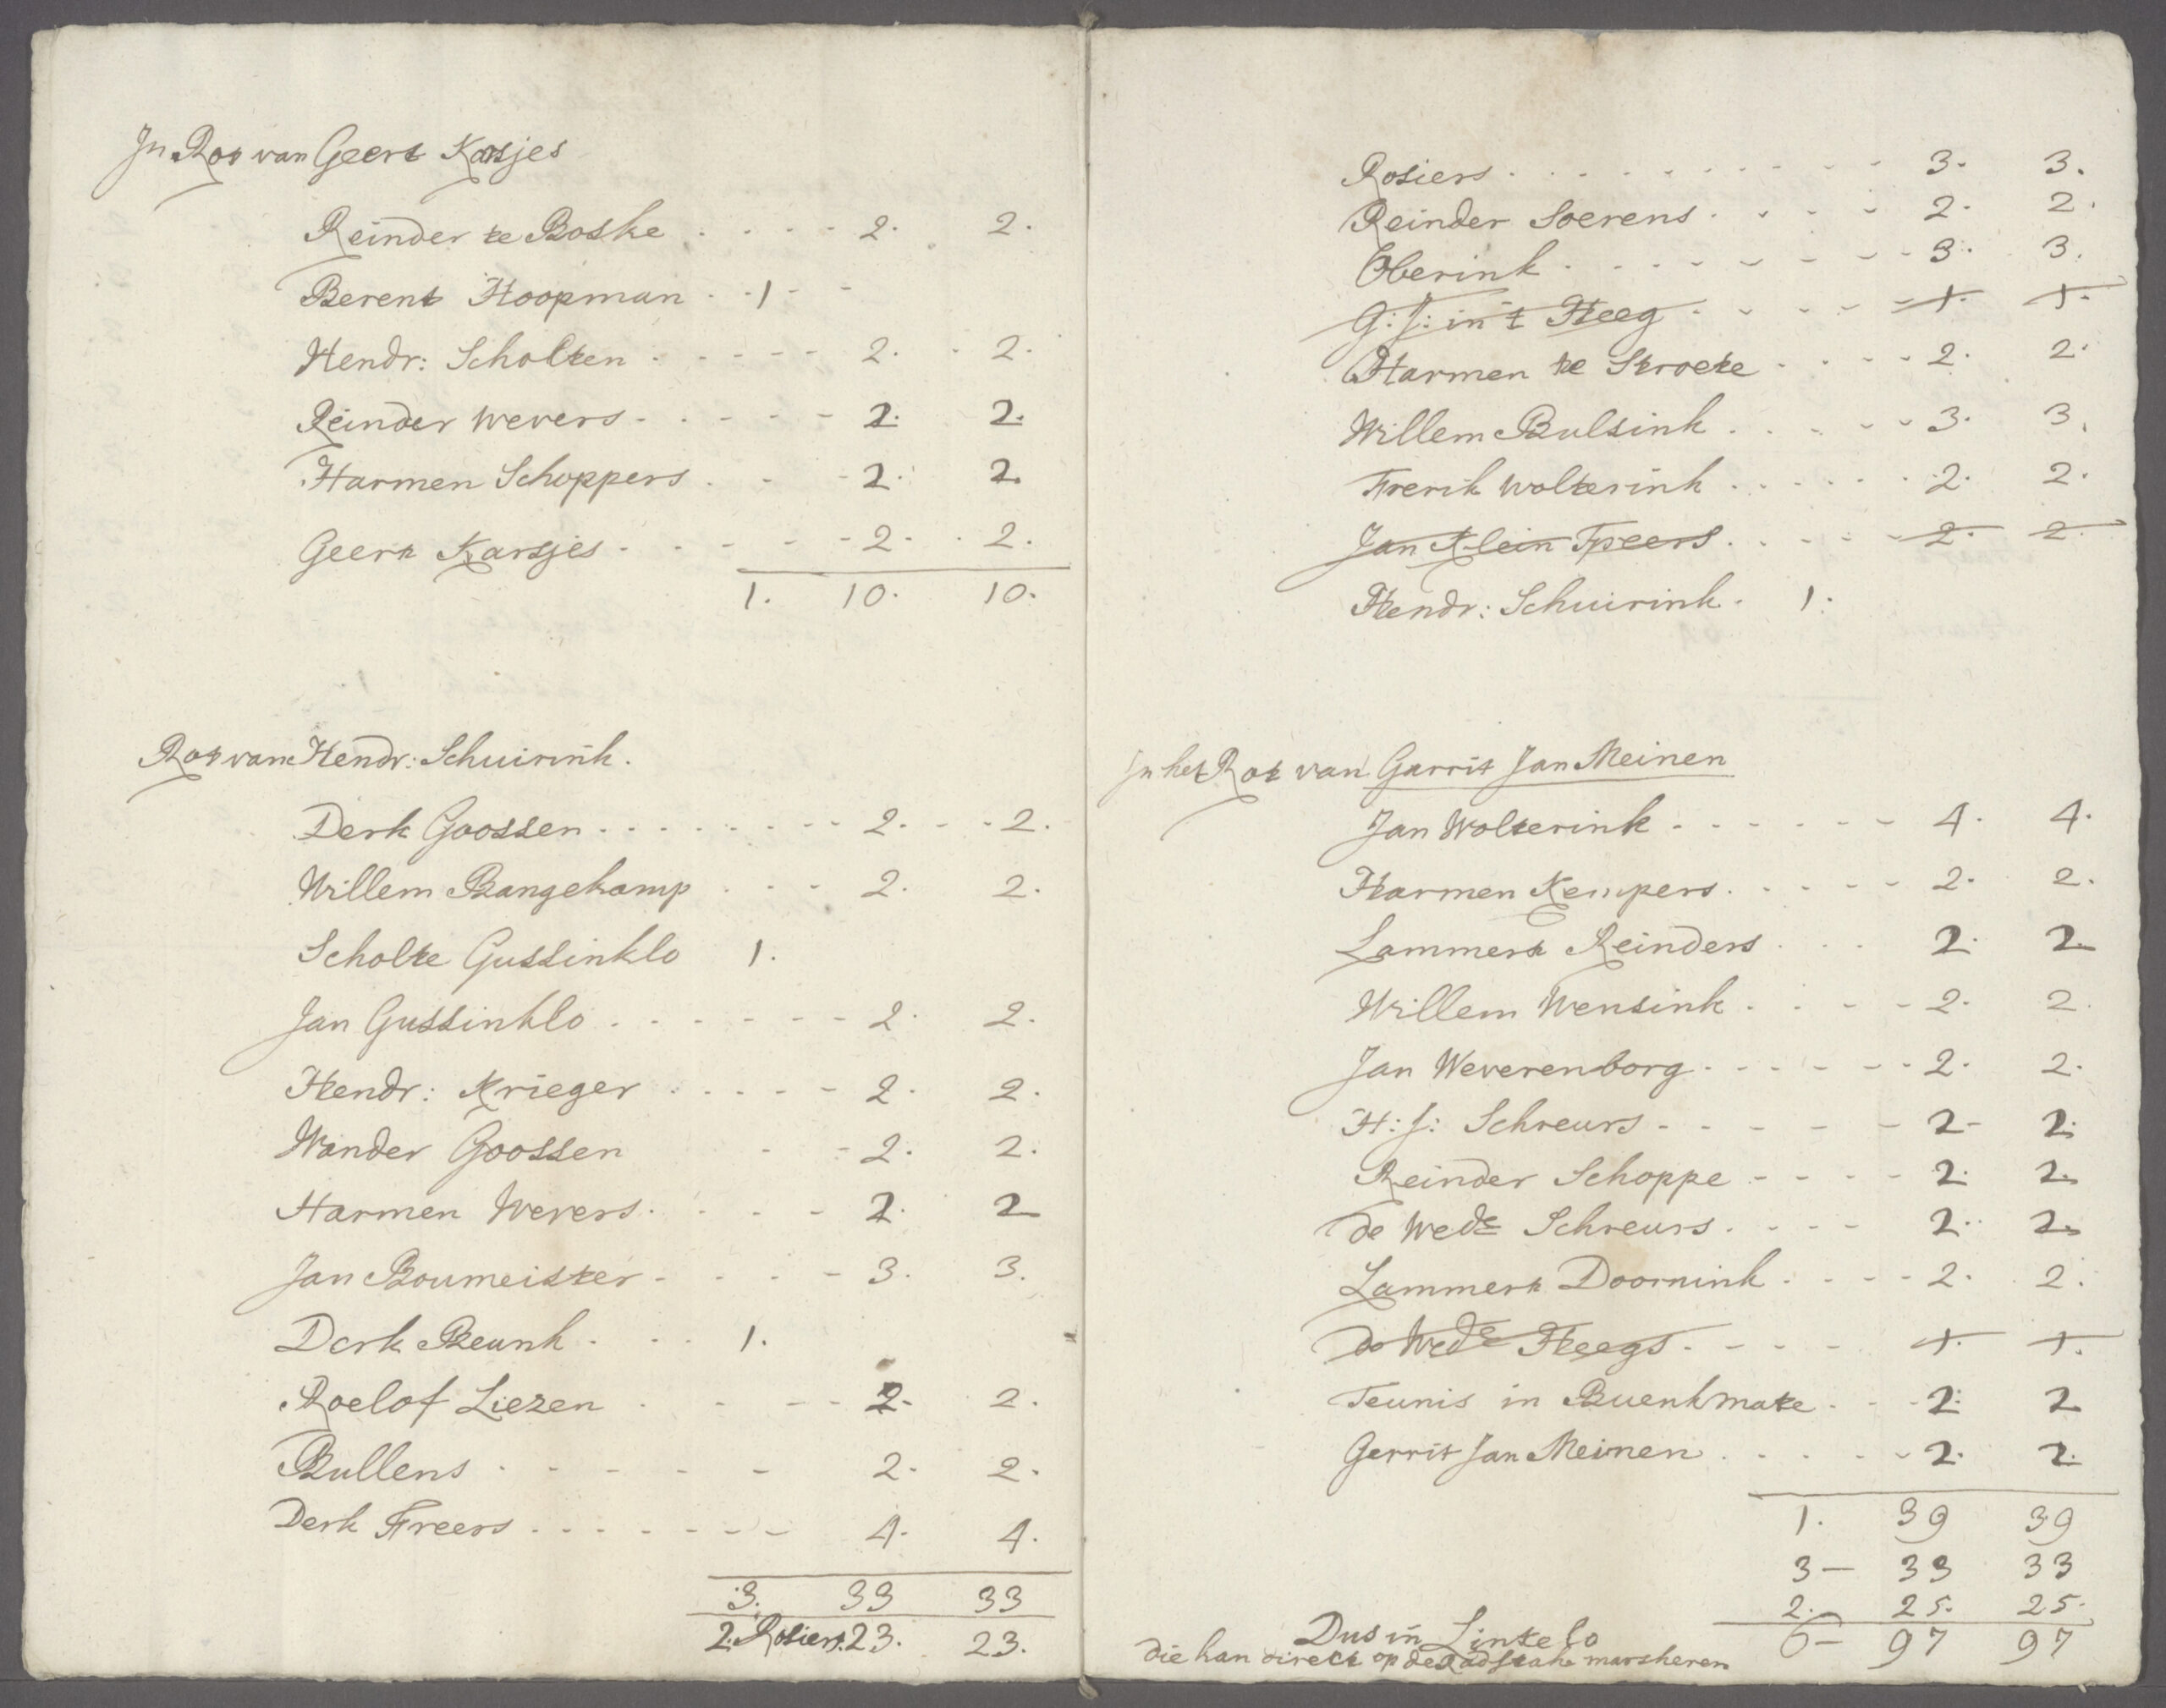 Jn Rot van Geert Karsjes
Reinder te Boske . . . - 2. 2.
Berent Hoopman . - 1 - -
Hendr: Scholten . - - - - 2. . 2.
Reinder Wevers - . - - - 2. 2.
Harmen Schoppers . - - 2. 2.
Geert Karsjes . - - - - 2. . 2.
1. 10. 10.
Rot van Hendr: Schuirink.
Derk Goossen . . . . . . - - - 2. - - . 2.
Willem Bangekamp . - - 2. 2.
Scholte Gussinklo 1.
Jan Gussinklo . . - - - - - 2. 2.
Hendr: Krieger . - - - - 2. 2.
Wander Goossen - - 2. 2.
Harmen Wevers . - - - 2. 2
Jan Boumeister - - - - - 3. 3.
Derk Beunk . - - 1.
Roelof Liezen . - - - 2. 2.
Bullens - - - - - - 2. 2.
Derk Freers . . - - - - - - 4. 4.
3. 33 33
2. Rosiers. 23. 23.
Rosiers . . . . . . - - - - 3. 3.
Reinder Soerens . - - - - 2. 2.
Oberink . . - - - - - - - 3. 3.
G: J: in 't Heeg . - - - - 1. 1.
Harmen te Stroete . - - - 2. 2.
Willem Bulsink . . - - - - 3. 3.
Frerik Wolterink . . . . . . 2. 2.
Jan Klein Tpeers . . - - - - 2. 2.
Hendr: Schuirink . 1.
Jn het Rot van Garrit Jan Meinen
Jan Wolterink . - - - - - - 4. 4.
Harmen Kempers . . - - - - 2. 2.
Lammert Reinders . . . 2. 2.
Willem Wensink . . - - - 2. 2.
Jan Weverenborg . - - - - - 2. 2.
H: J: Schreurs - - - - - - 2 - 2.
Reinder Schoppe - - - - 2. 2.
de Wede Schreurs . - - - 2. 2.
Lammert Doornink . - - - - 2. 2.
de Wede Heegs . - - - - 1. 1.
Teunis in Buenkmate . - - 2. 2
Gerrit Jan Meinen . . . - - 2. 2.
1. 39 39
3 - 33 33
2. 25. 25.
Dus in Lintelo 6 - 97 97
die kan direct op de marsheren